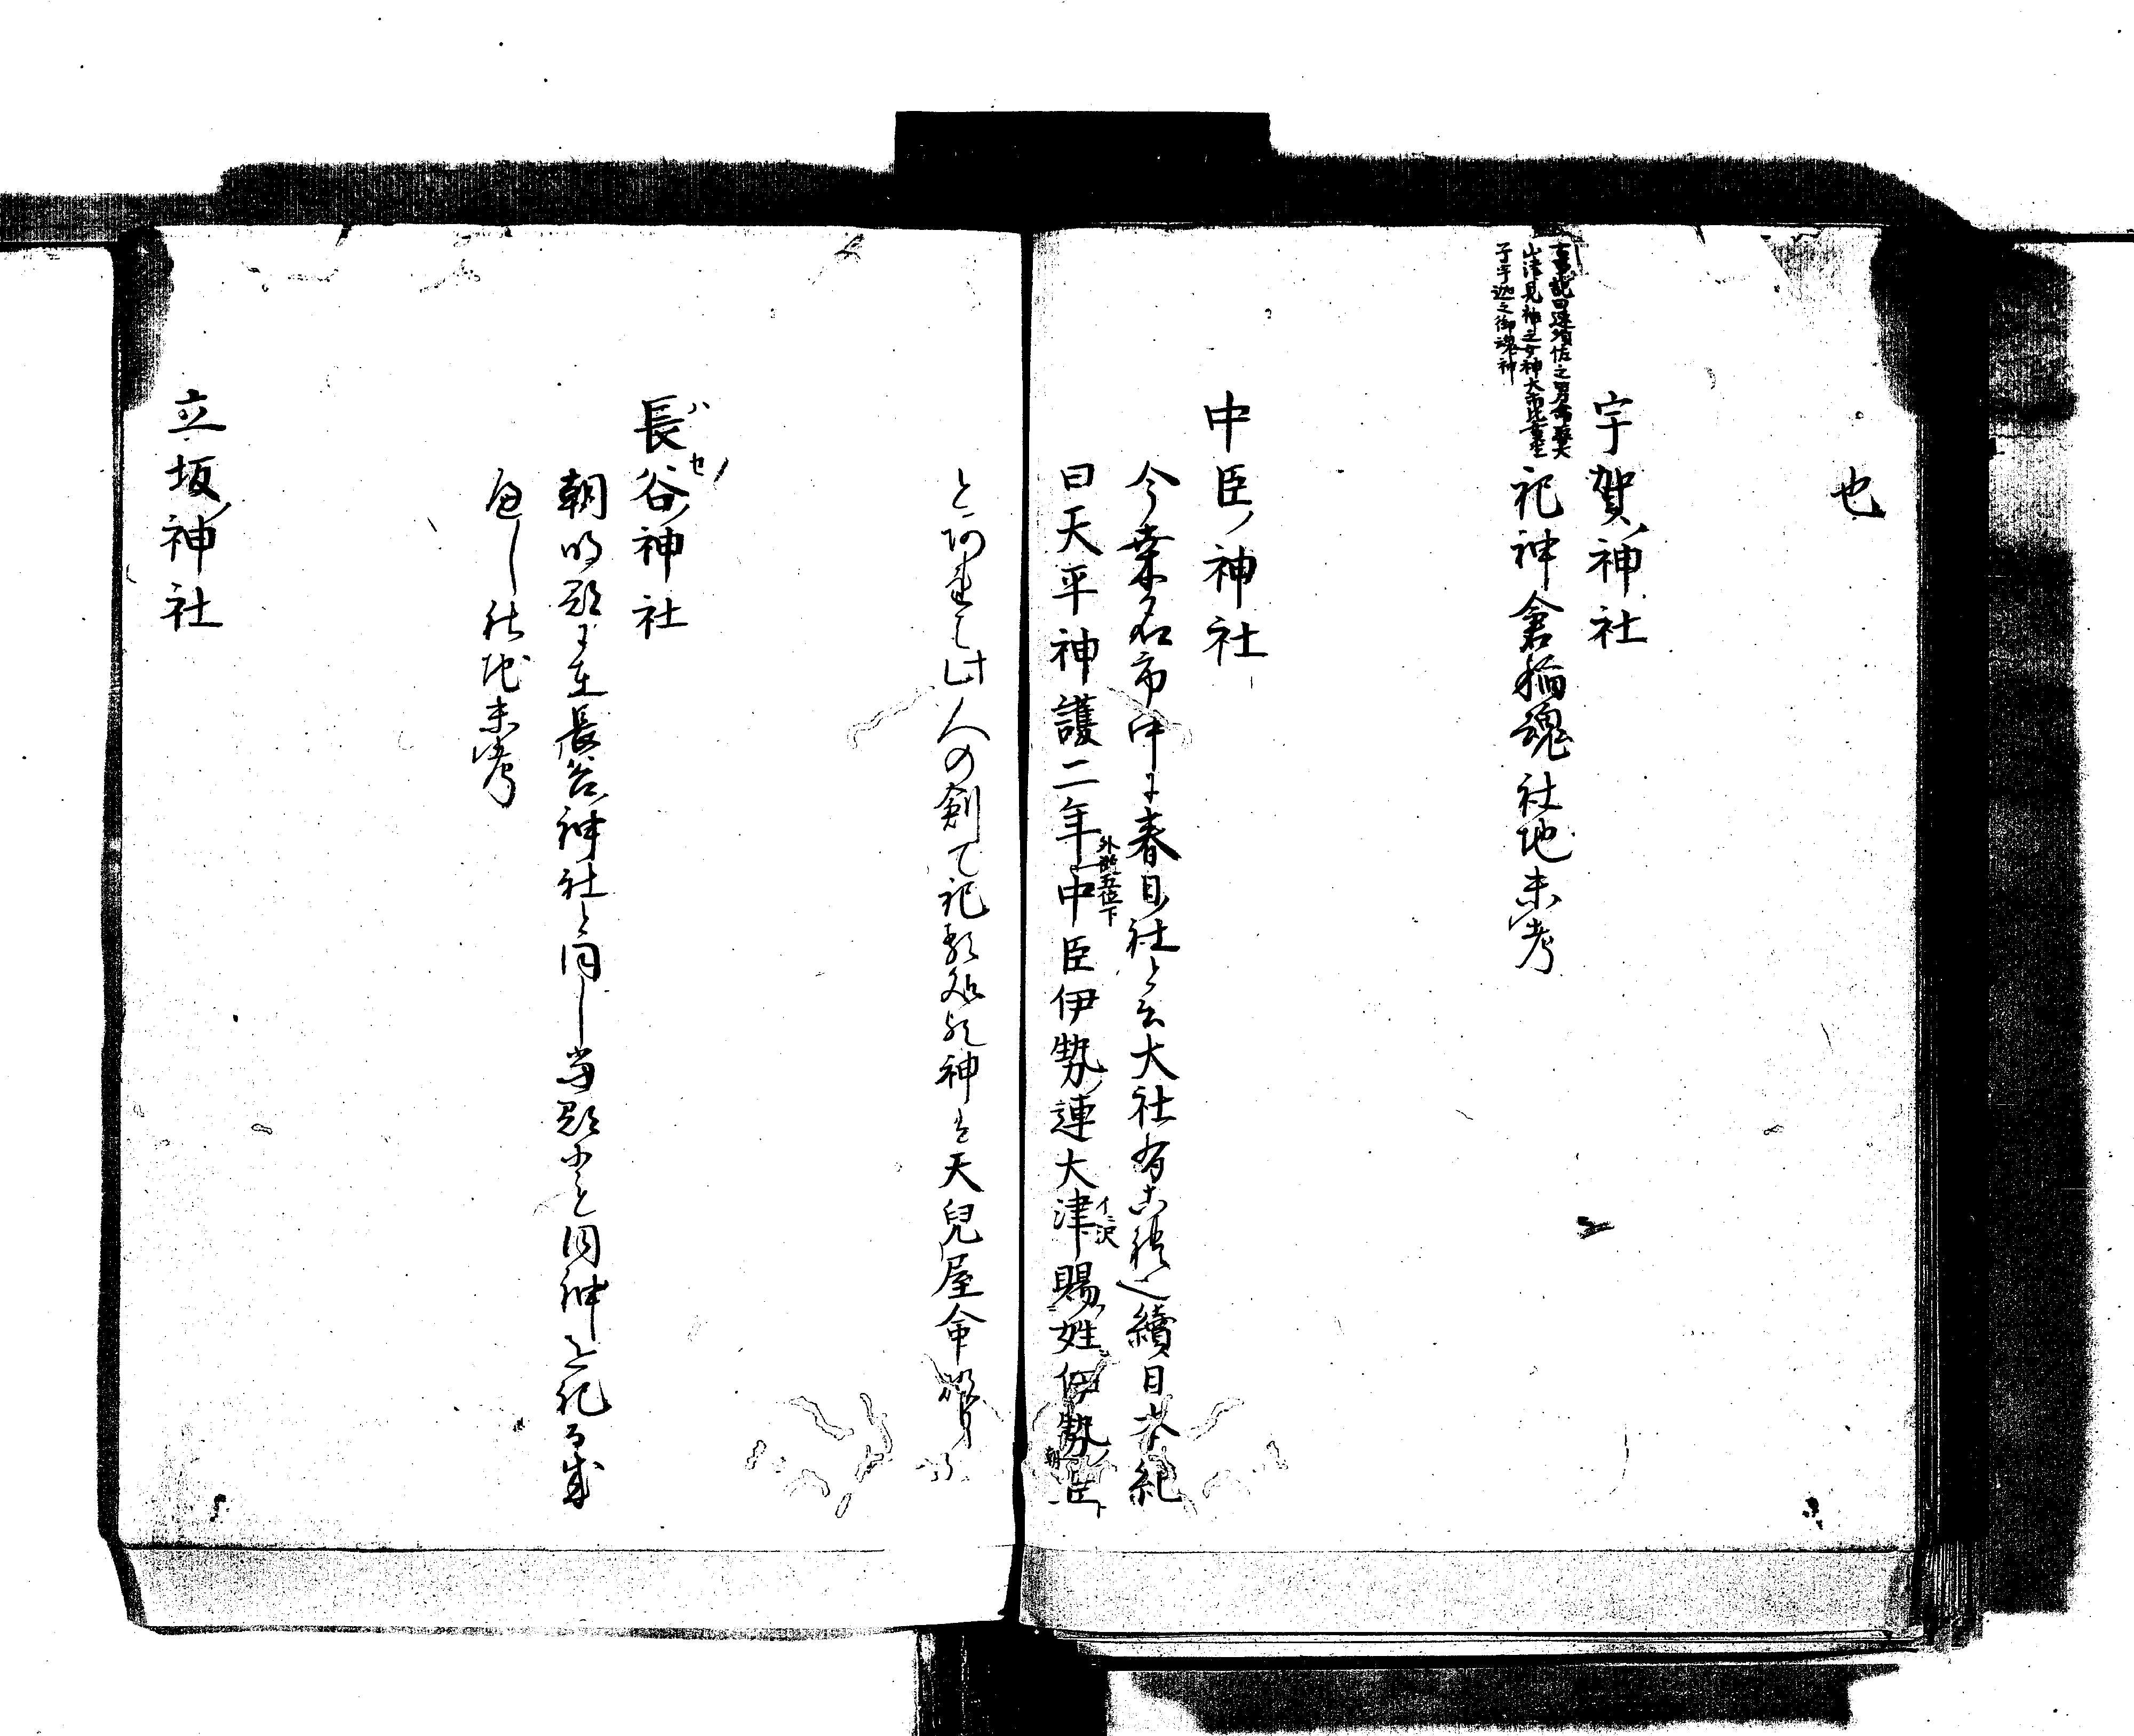 也
宇賀ノ神社
古事記曰速須佐之男命娶大
山津見神之女神大市比売生
子宇迦之御魂神
祀神倉稲魂社地未考
中臣ノ神社
今桒名市中に春日社と云大社有 続日本紀
曰天平神護二年中臣伊勢ノ連大津賜姓伊勢ノ
外從五位下
イニ沢
此人の創て祀 神は天兒屋命
長谷ノ神社
ハセノ
朝明郡に在長谷ノ神社と同し当郡 同神を祀る成
へし社地未考
立坂ノ神社